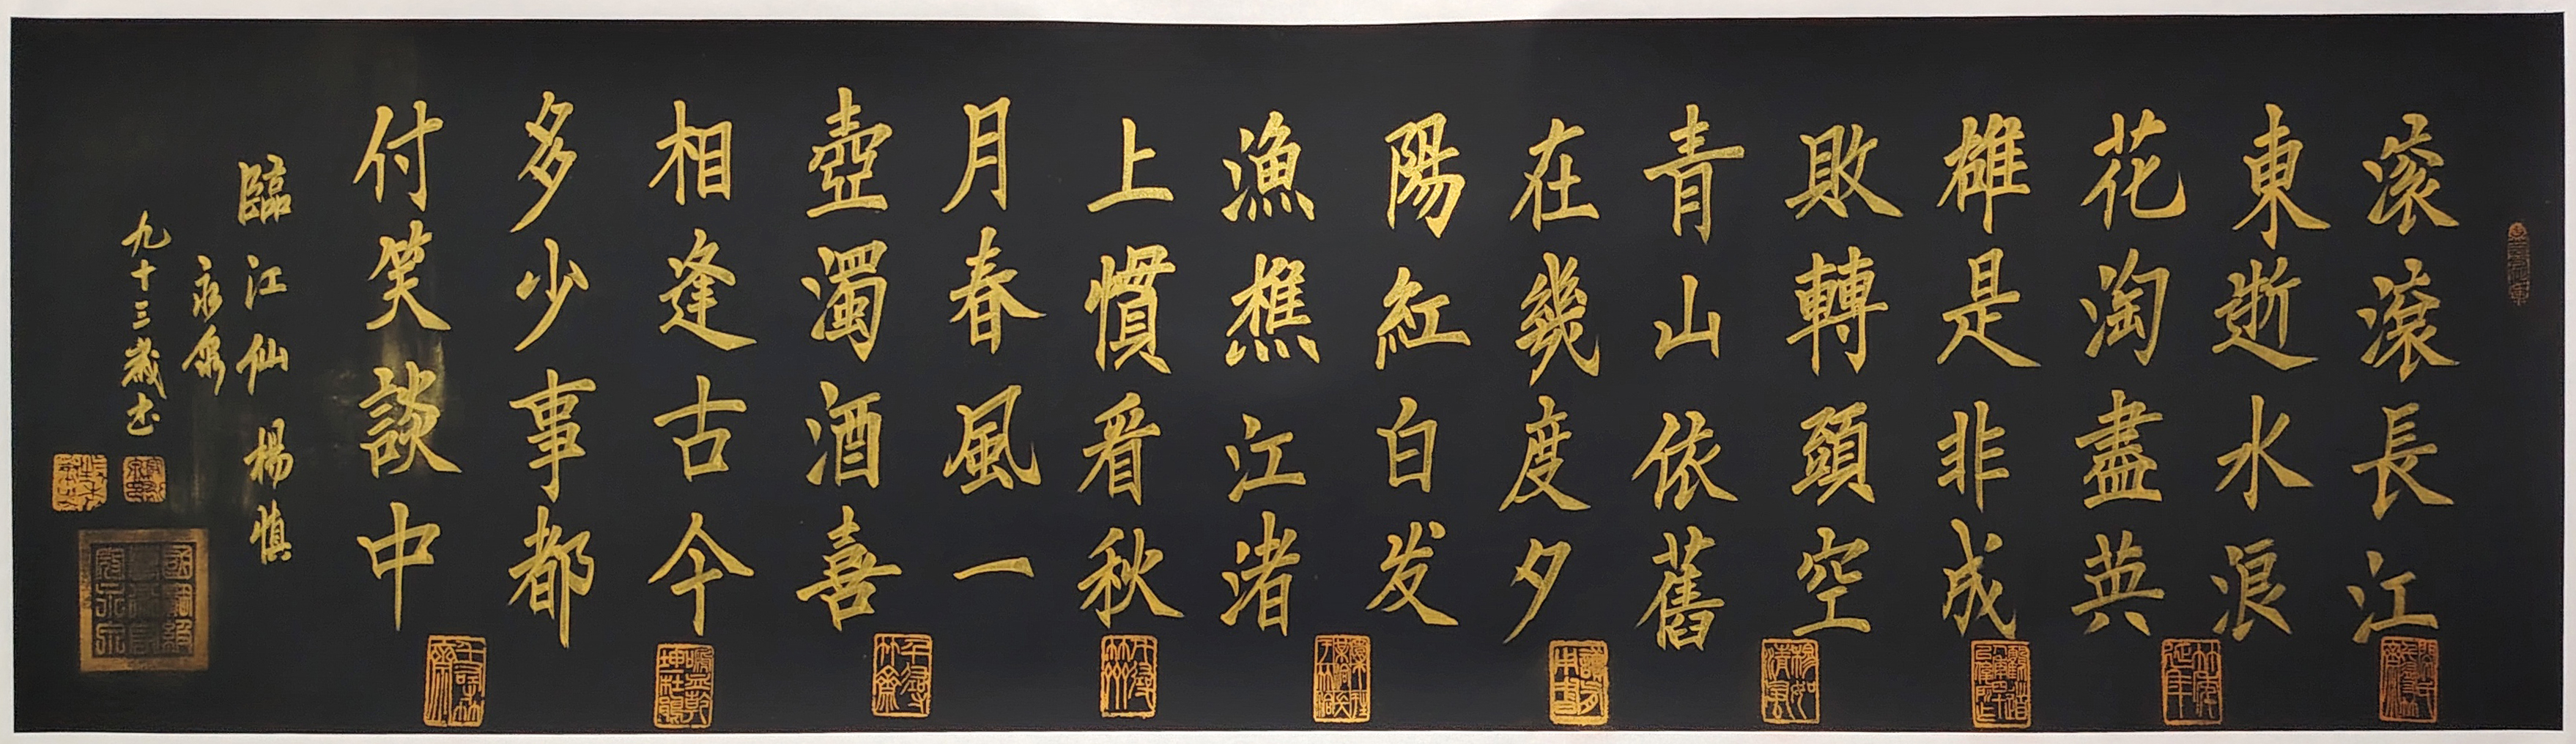 滚滾長江
東逝水浪
花淘盡英
雄是非成
敗轉頭空
青山依舊
在幾度夕
陽紅白发
漁樵江渚
上慣看秋
月春風一
壺濁酒喜
相逢古今
多少事都
付笑談中
臨江仙 楊慎
永泉
九十三歲书